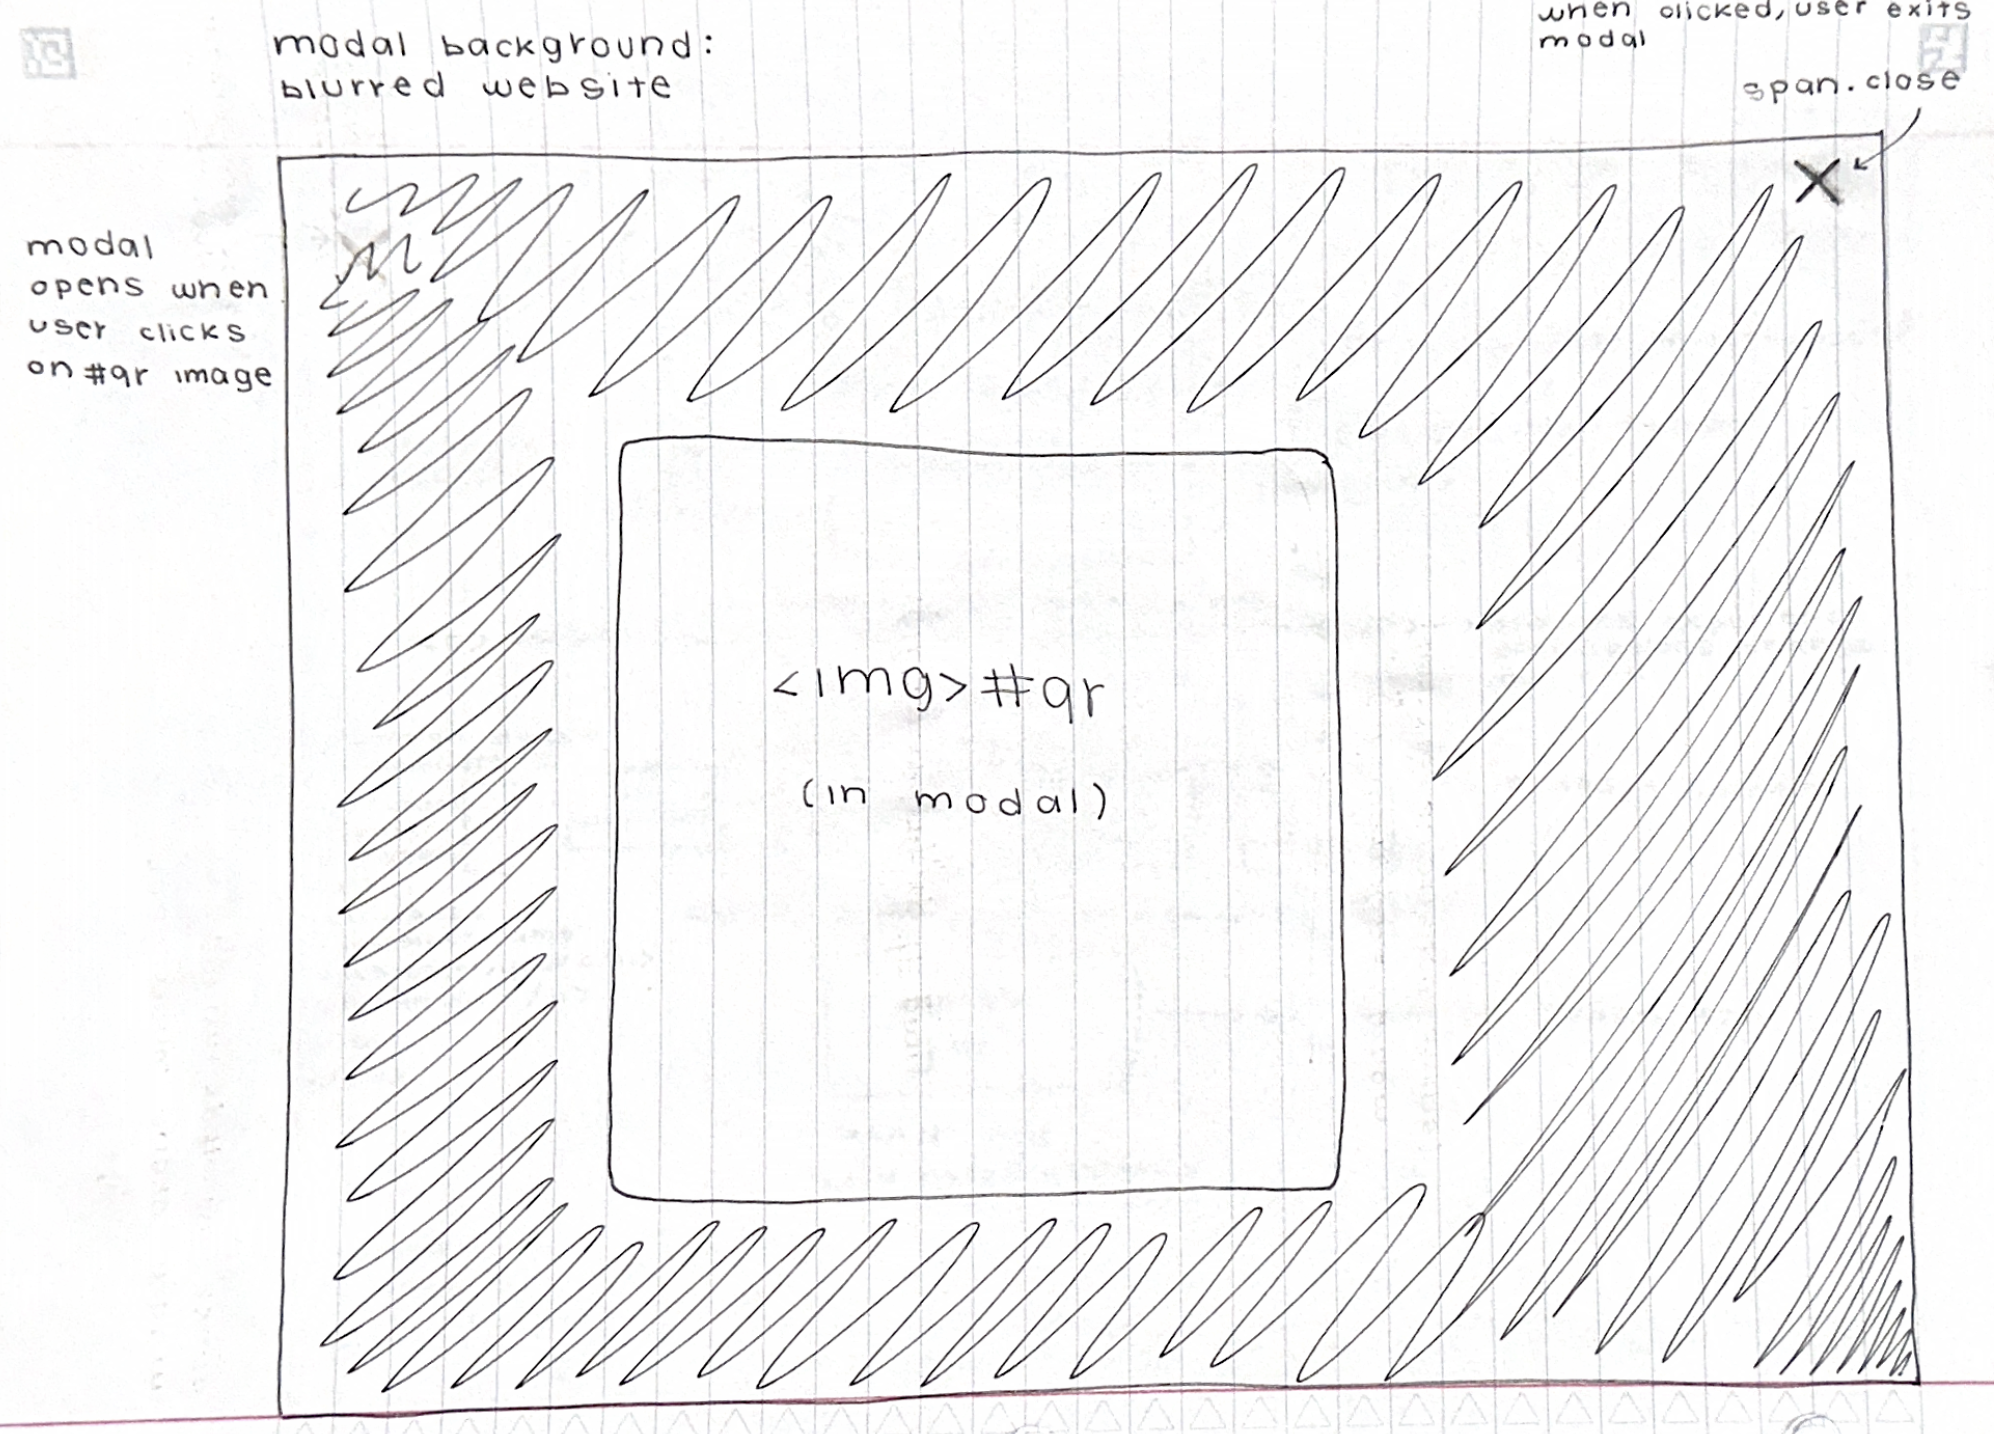 modal background:
blurred website
when clicked, user exits
modal
span.close
X
modal
opens when
user clicks
on #qr image
<img>#qr
(in modal)